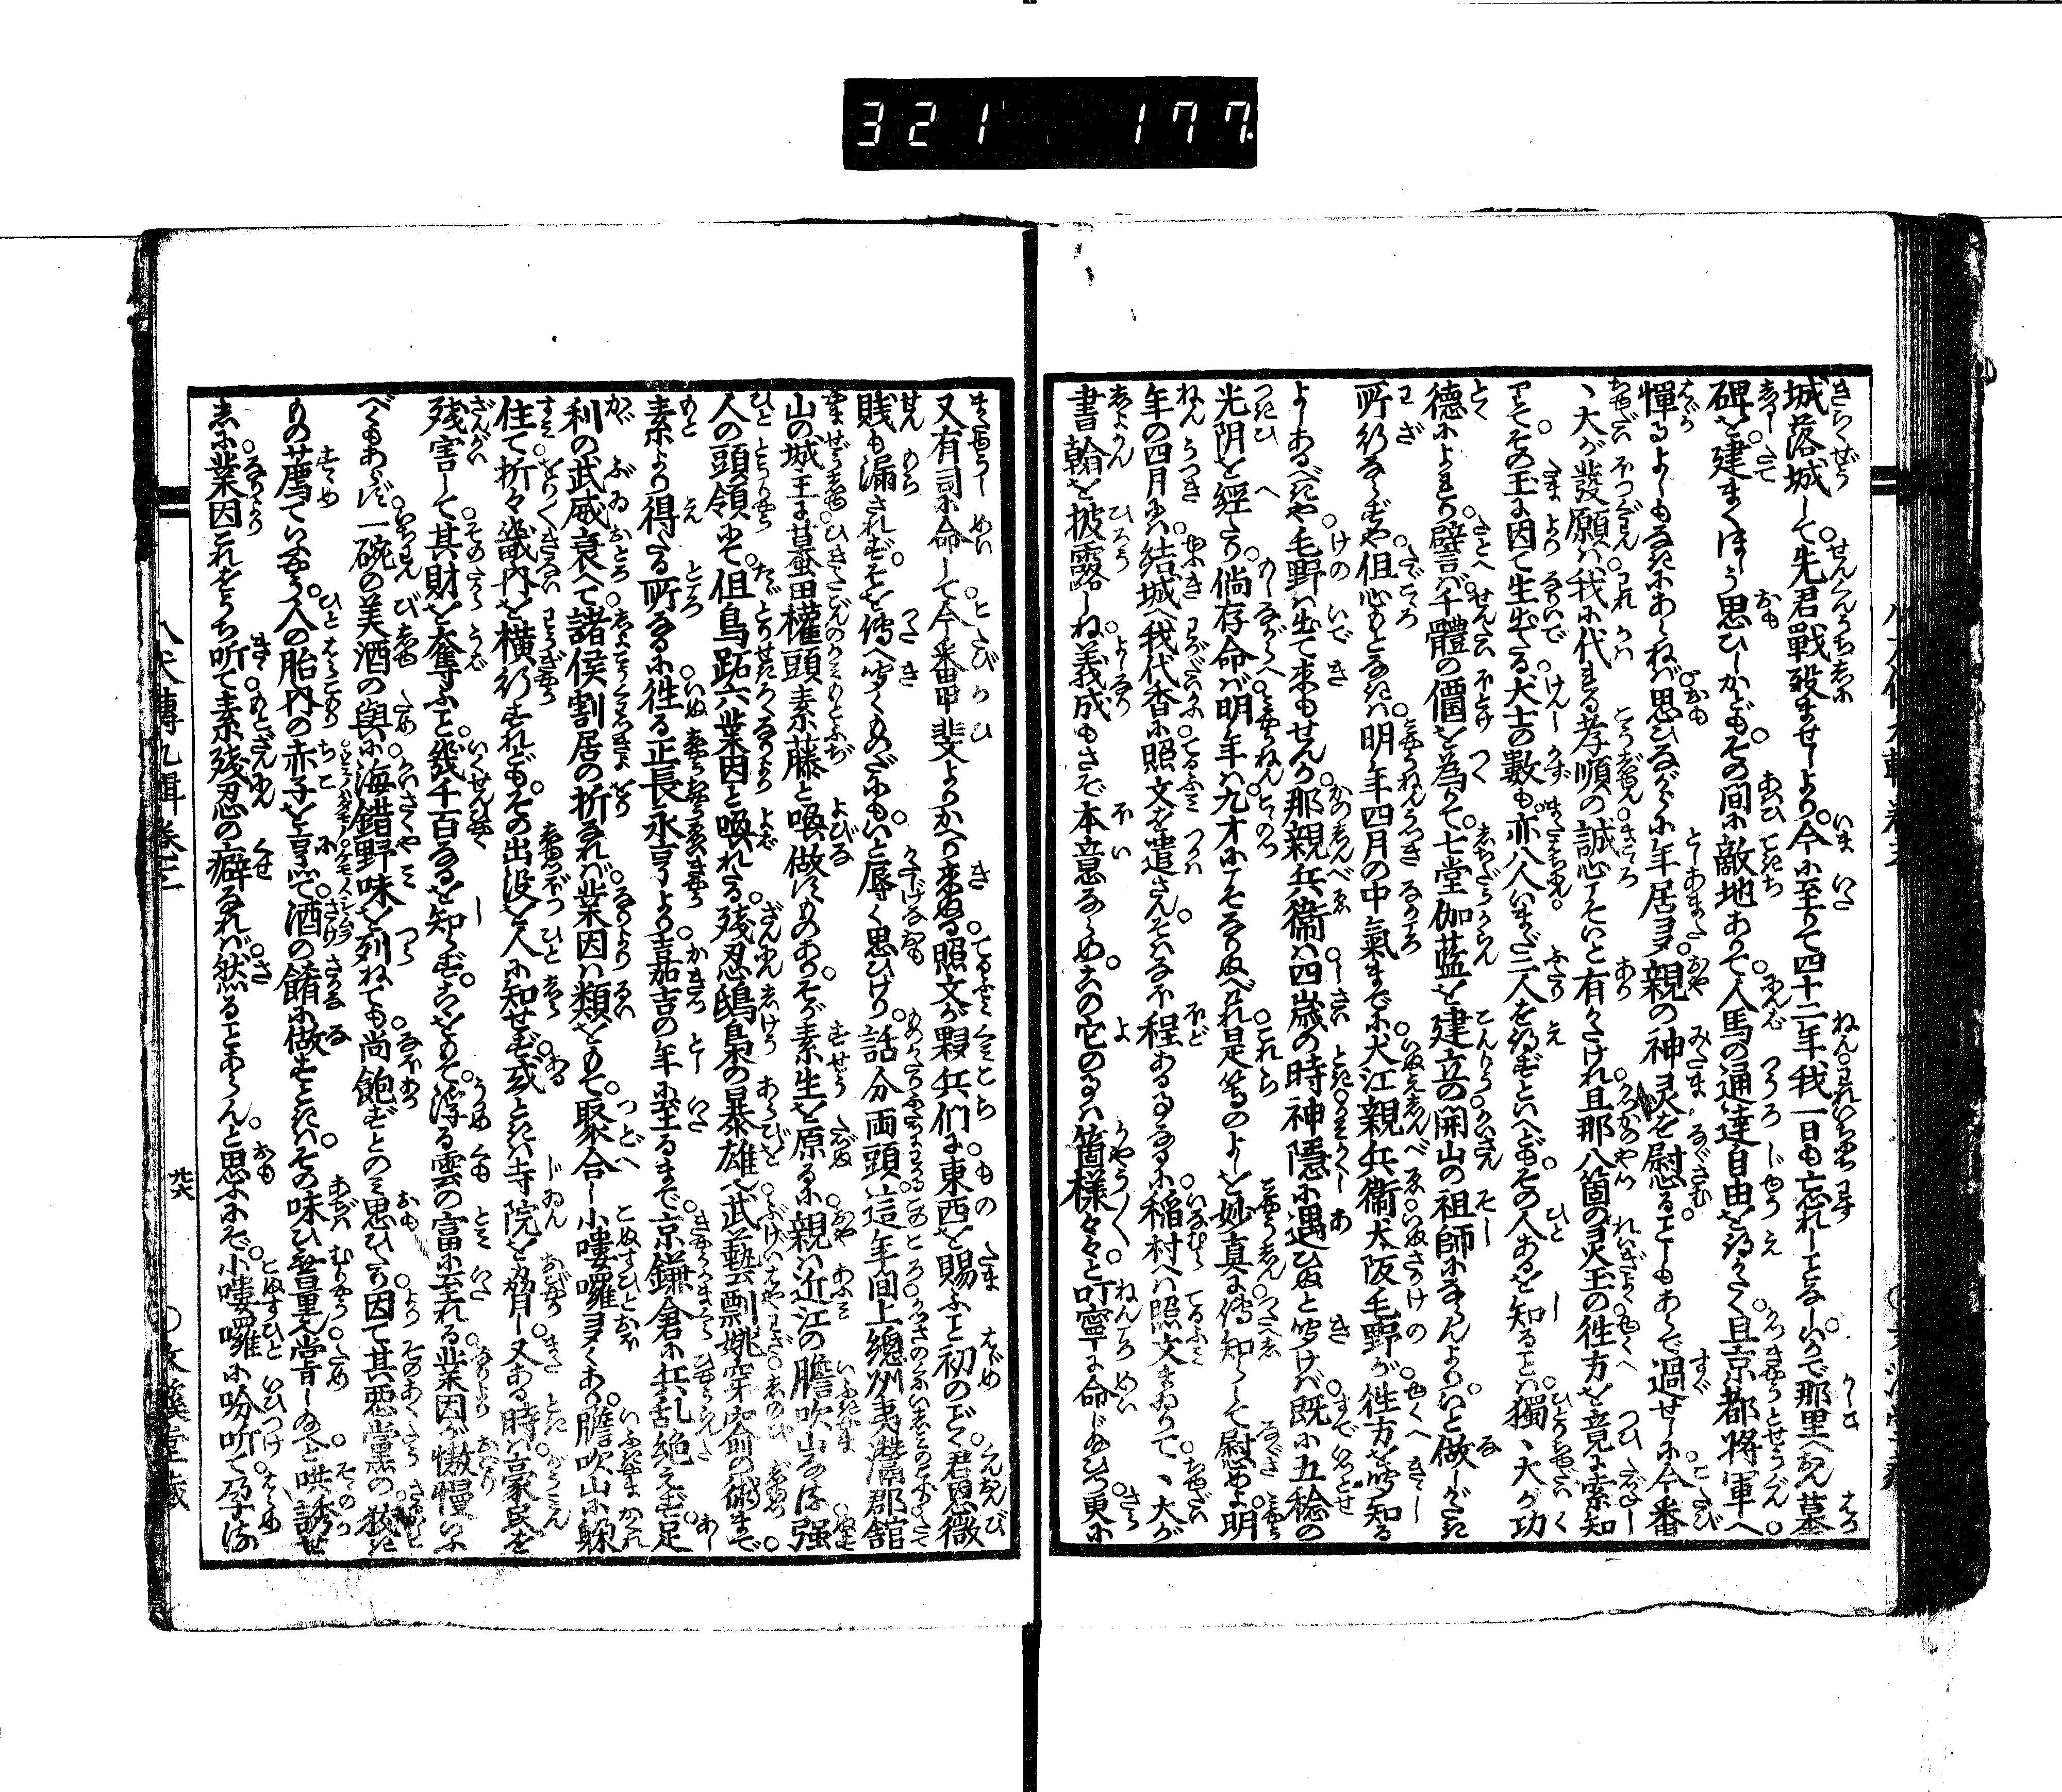 321 177
城落城して先君戰歿ませしより。今に至りて四十二年。我一日も忘れしことなし。いかで那里へ墓
碑を建まくほしう思ひしかども。その間に敵地ありて。人馬の通達自由を得がたく。且京都將軍へ
憚るよしもなきにあらねば。思ひながらに年居多。親の神灵を慰ることしもあらで過せしに。今番
丶大が發願は。我に代れる孝順の誠心。そいと有がたけれ。且那八箇の灵玉の往方を竟に索知
りて。その玉に因て生出たる。犬士の數も。亦八人。いまだ二人を得ずといへども。その人あるを知ることは。獨丶大が功
德によれり。譬ば千體の價を為りて。七堂伽藍を建立の。開山の祖師にならんより。いと做しがたき
所行ならずや。但心もとなきは。明年四月の中氣までに。犬江親兵衞。犬阪毛野が往方を听知る
よしあるべきや。毛野は出て來もせんか。那親兵衞は四歲の時。神隱に遇ひぬと听けば。既に五稔の
光阴を經たり。倘存命ば。明年は九才にこそなりぬべけれ。是等のよしを妙真に傳知らして慰めよ。明
年の四月には。結城へ我代香に。照文を遣さん。そはなほ程あることなるに。稻村へは照文まゐりて。丶大が
書翰を披露しね。義成もさぞ本意ならめ。この他のことは箇樣々々と。叮寧に命じ給ひつ。更に
又有司に命して。今番甲斐よりかへり來ぬる。照文が夥兵們に。東西を賜ふこと初のごとく。君恩微
賤も漏さねば。そを傳へ听くものだにも。いと辱く思ひけり。話分兩頭。這年間上總州夷灊郡舘
山の城主に。蟇田權頭素藤と喚做すものあり。そが素生を原るに。親は近江の膽吹山なる。强
人の頭領にて。但鳥跖六業因と喚れたる。殘忍鴟梟の暴雄。武藝剽姚穿窬の術まで。
素より得たる所なるに。往る正長永享より。嘉吉の年に至るまで。京鎌倉に兵乱絶えず。足
利の武威衰へて。諸侯割居の折なれば。業因は類をもて聚合し。小嘍囉多くあり。膽吹山に躱
住て。折々畿內を橫行すれども。その出没を人に知せず。或ときは寺院を劫し。又ある時は豪民を
殘害して。其財を奪ふこと。幾千百なるを知らず。こをもて浮る雲の富に至れる業因が慠慢いふ
べくもあらず。一碗の美酒の與に。海錯野味を列ねても。尚飽ずとのみ思ひたり。因て其惡黨の
ものの薦ていふやう。人の胎內の赤子を烹て。酒の餚に做すときは。その味ひ無量也。甞し給へと哄誘せ
しに。業因これをうち听て。素殘忍の癖なれば。然ることあらんと思ふにぞ。小嘍囉に吩咐て。孕る
八犬傳九輯卷三
廿六
○文溪堂藏